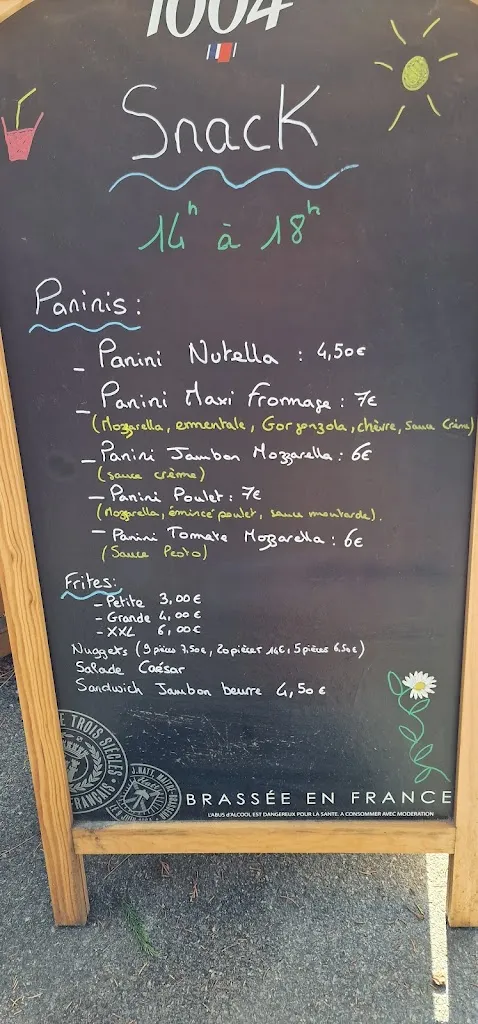 1664
Snack
14h à 18h
Paninis :
- Panini Nutella : 4,50€
- Panini Maxi Fromage : 7€
(Mozzarella, ermentale, Gorgonzola, chèvre, sauce crème)
- Panini Jambon Mozzarella : 6€
(sauce crème)
- Panini Poulet : 7€
(Mozzarella, émincé poulet, sauce moutarde).
- Panini Tomate Mozzarella : 6€
(Sauce Pesto)
Frites :
- Petite 3,00€
- Grande 4,00€
- XXL 6,00€
Nuggets (9 pièces 7,50€, 20 pièces 14€, 5 pièces 6,50€)
Salade Caésar
Sandwich Jambon beurre 4,50€
TROIS SIÈCLES
FRANÇAIS
BRASSÉE EN FRANCE
L'ABUS D'ALCOOL EST DANGEREUX POUR LA SANTÉ. A CONSOMMER AVEC MODERATION